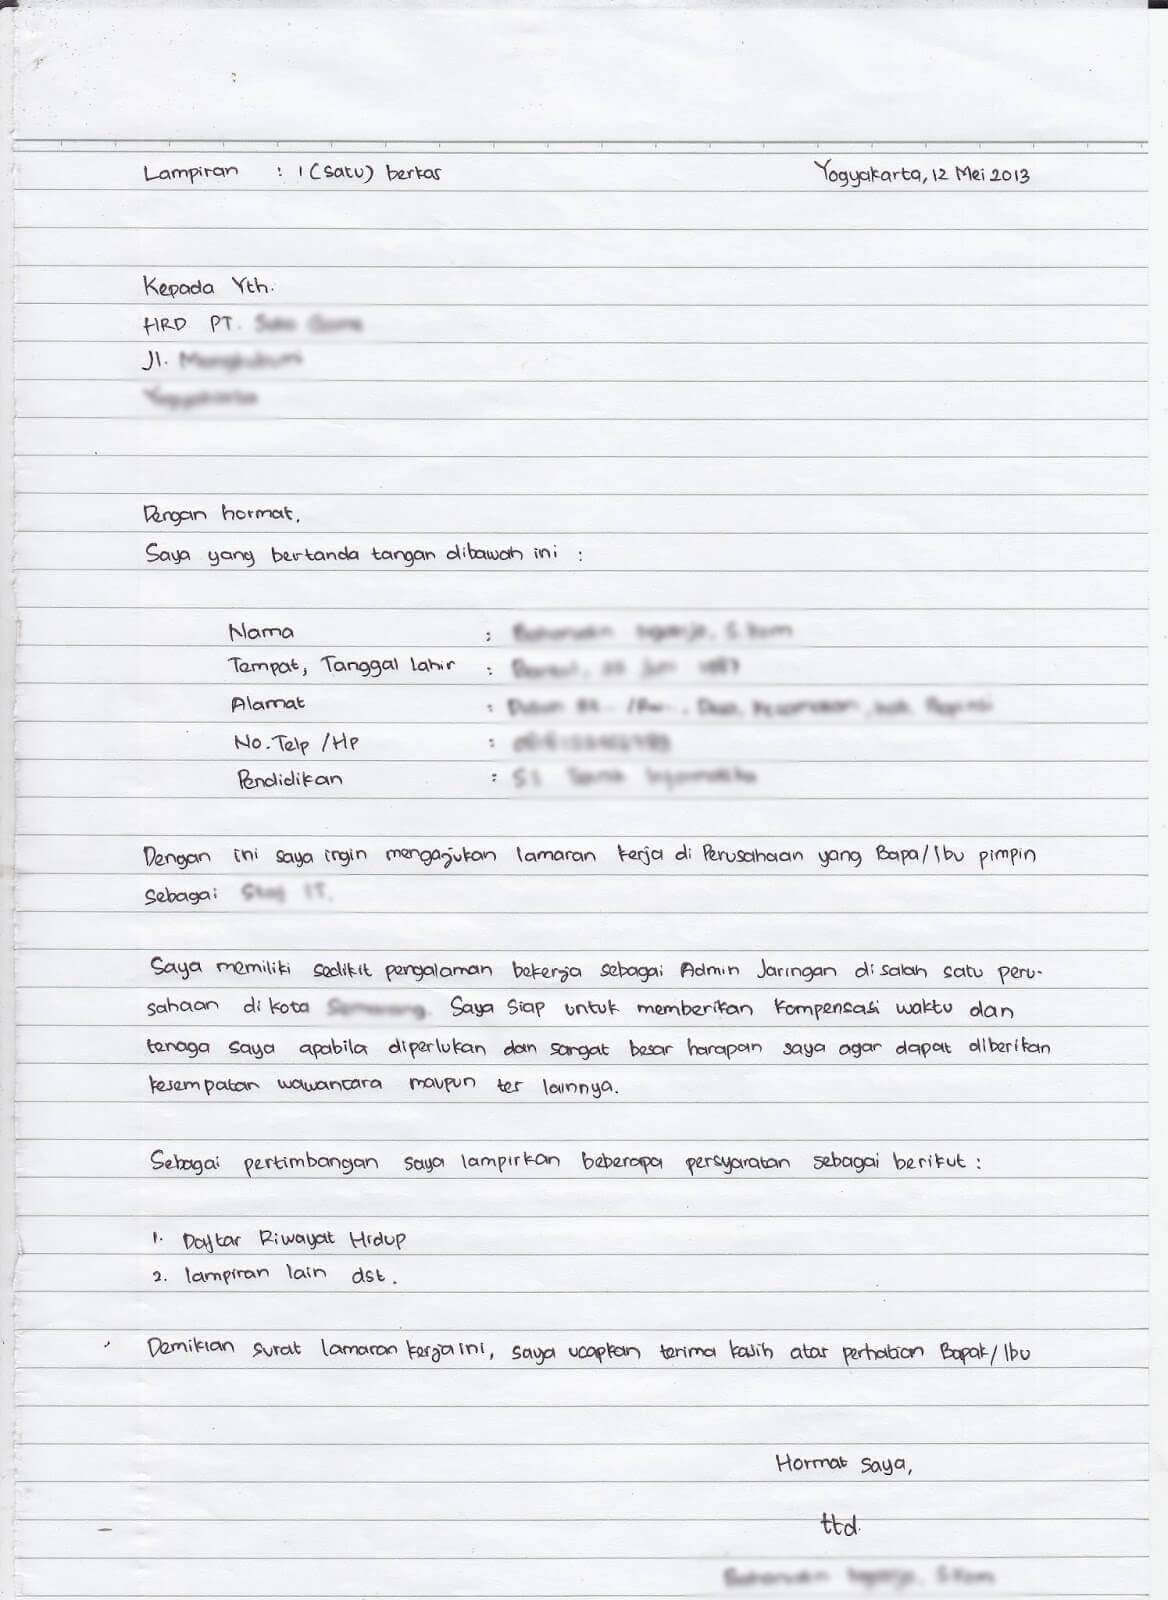 Lampiran : 1 (satu) berkas Yogyakarta, 12 Mei 2013
Kepada Yth.
HRD PT.
Jl.
Dengan hormat,
Saya yang bertanda tangan dibawah ini :
Nama :
Tempat, Tanggal lahir :
Alamat :
No. Telp / Hp :
Pendidikan :
Dengan ini saya ingin mengajukan lamaran kerja di Perusahaan yang Bapa/Ibu pimpin
sebagai
Saya memiliki sedikit pengalaman bekerja sebagai Admin Jaringan di salah satu peru-
sahaan di kota Saya siap untuk memberikan kompensasi waktu dan
tenaga saya apabila diperlukan dan sangat besar harapan saya agar dapat diberikan
kesempatan wawancara maupun tes lainnya.
Sebagai pertimbangan saya lampirkan beberapa persyaratan sebagai berikut :
1. Daftar Riwayat Hidup
2. lampiran lain dst.
Demikian surat lamaran kerja ini, saya ucapkan terima kasih atas perhatian Bapak/Ibu
Hormat saya,
ttd.